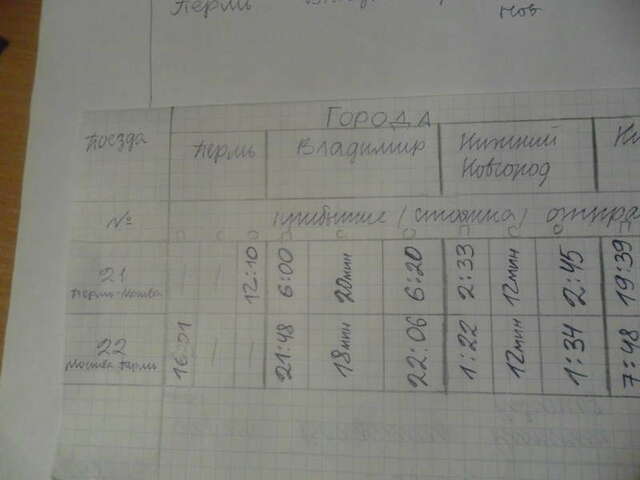 Пермь
нов
Города
Поезда
Пермь Владимир Нижний
Новгород
№ прибытие (стоянка) отпра
П С О П С О П С О П
21 — — 12:10 6:00 20мин 6:20 2:33 12мин 2:45 19:39
Пермь-Москва
22 16:01 — — 21:48 18мин 22:06 1:22 12мин 1:34 7:48
Москва Пермь